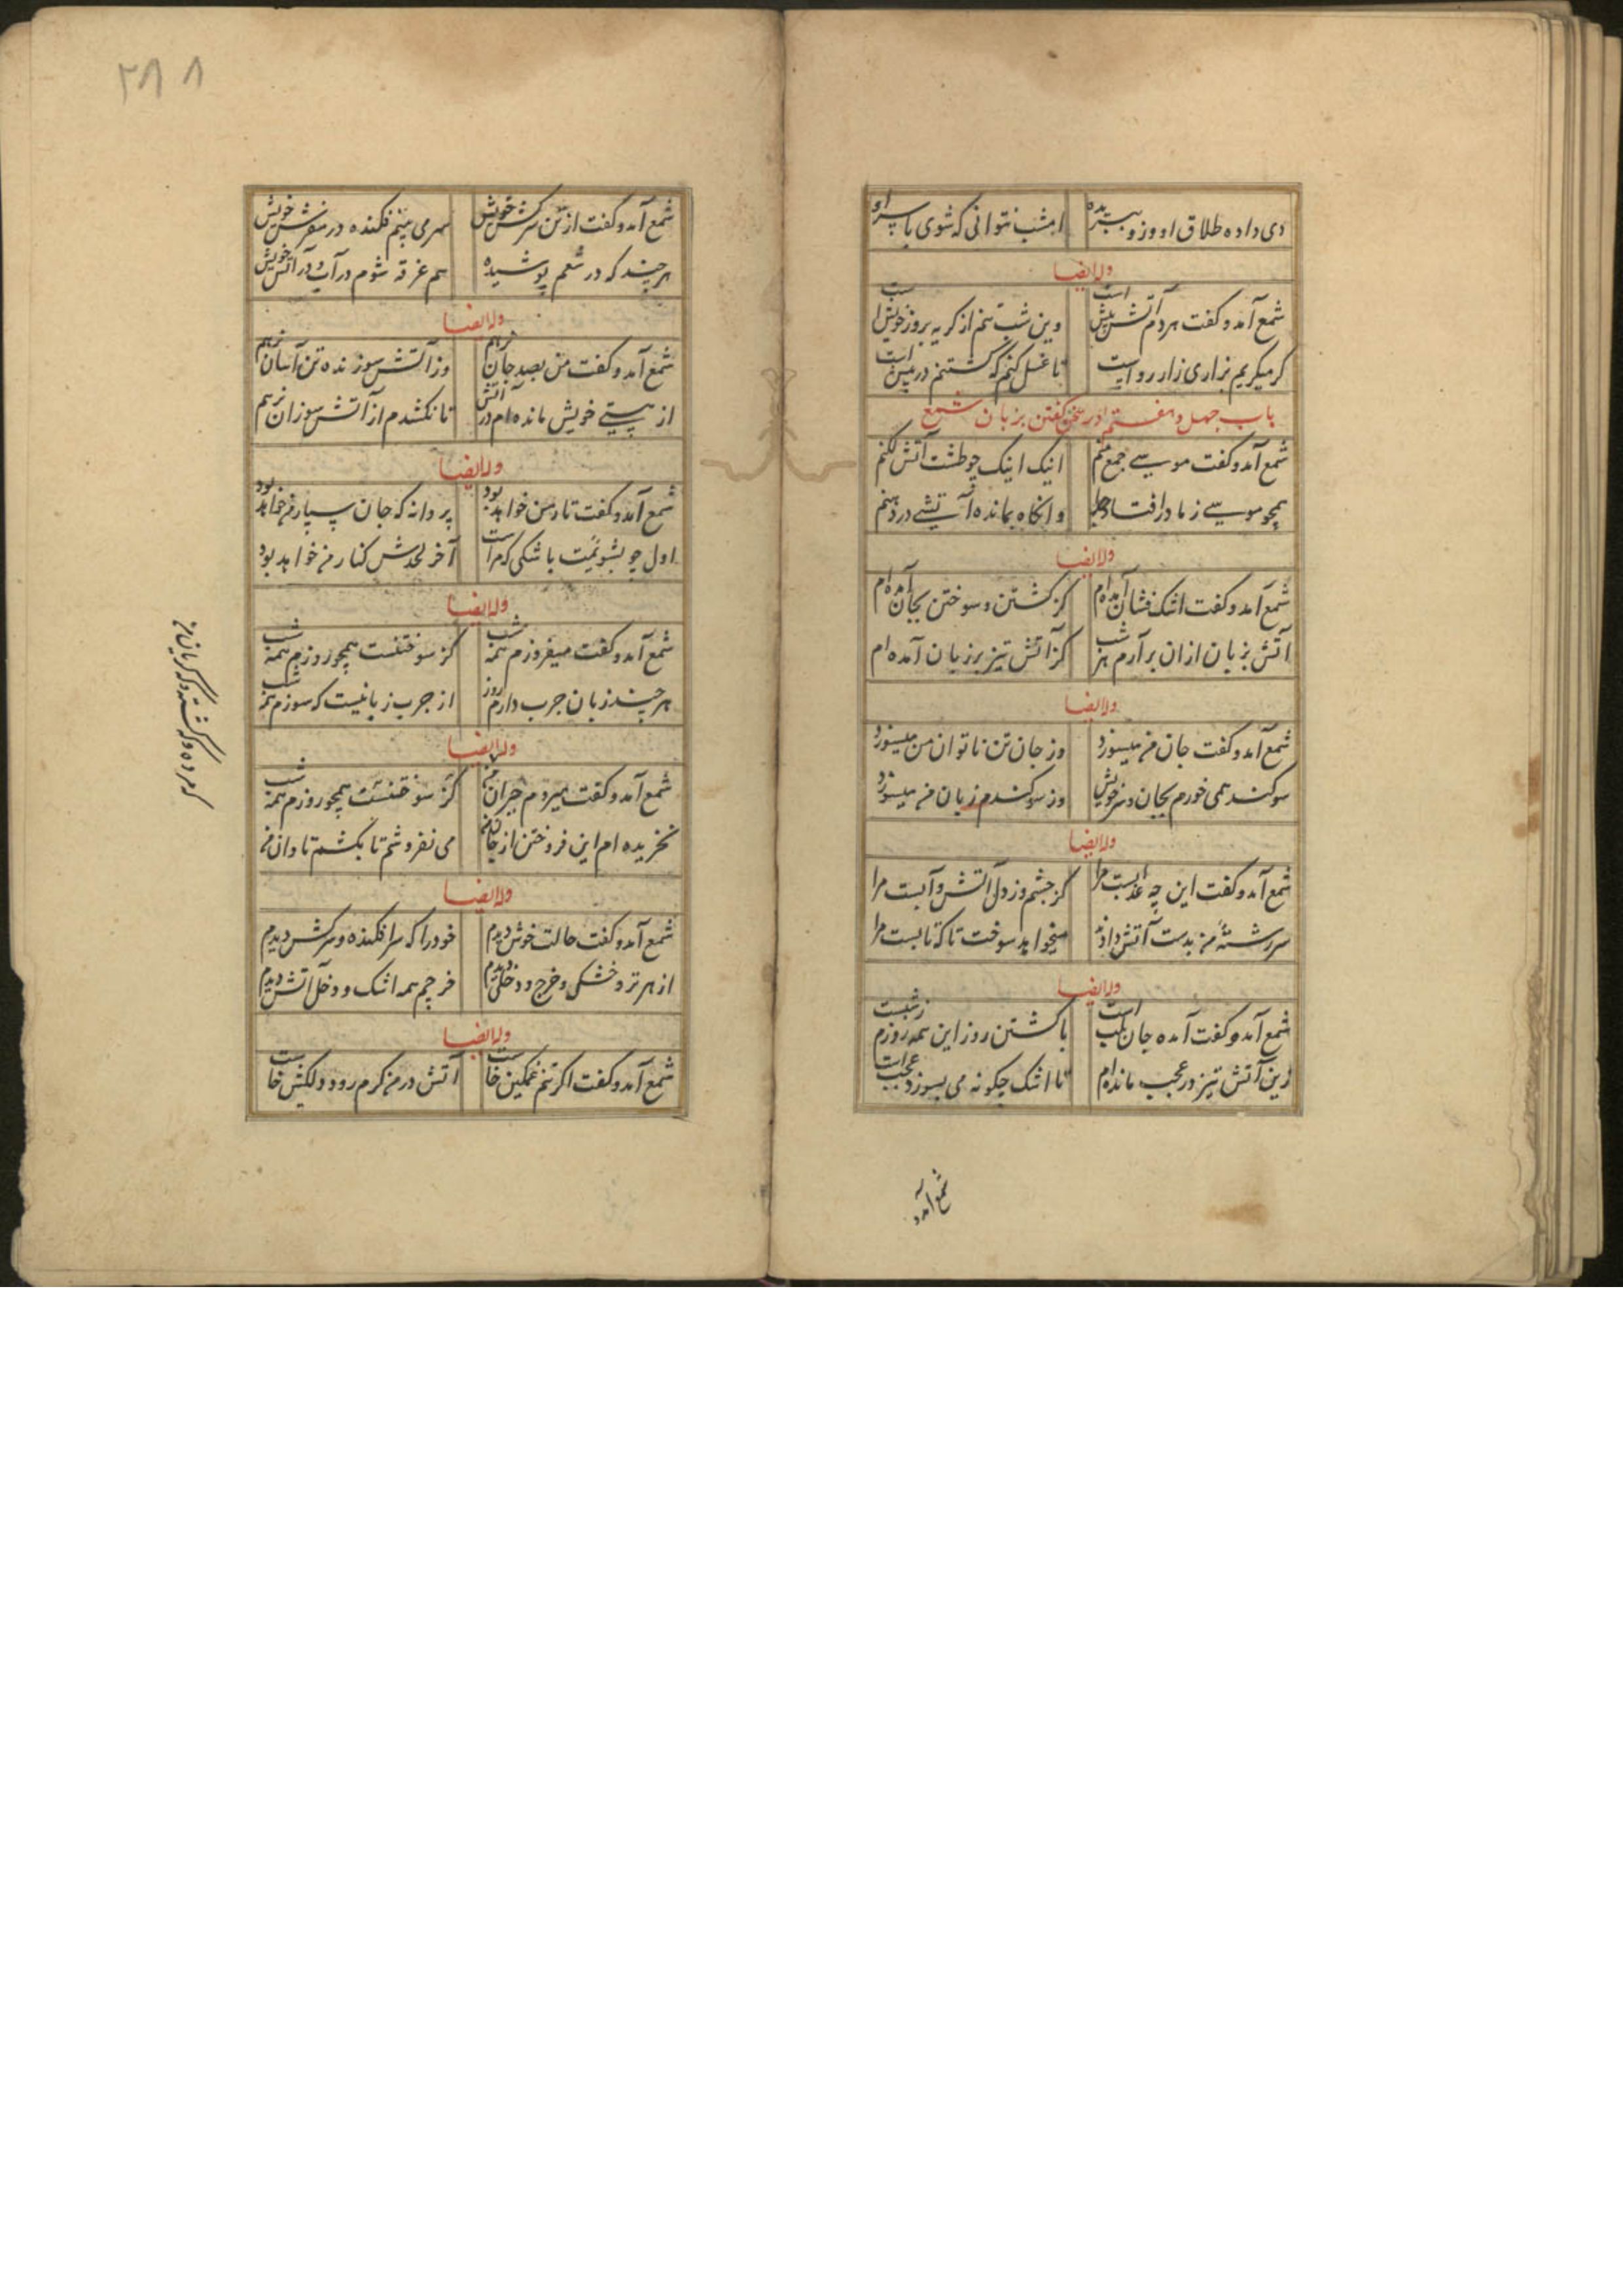 دی داده طلاق او وزو ببریده امشب نتوانی که شوی با سر او
وله ایضا
شمع آمد و گفت هر دم آتش بیش است وین شب منم از گریه بروز خویش است
گر میگریم بزاری زار رواست تا غسل کنم که کشتنم در پیش است
باب چهل و هفتم در سخن گفتن بزبان شمع
شمع آمد و گفت موسی جمع منم اینک اینک چو طشت آتش لگنم
همچو موسی ز مادر افتاده جدا وانگاه بمانده آتشی در دهنم
وله ایضا
شمع آمد و گفت اشک فشان آمده‌ام کز کشتن و سوختن بجان آمده‌ام
آتش بزبان ازان برآرم هر شب کز آتش تیز بر زبان آمده ام
وله ایضا
شمع آمد و گفت جان من میسوزد وز جان تن ناتوان من میسوزد
سوکند همی خورم بجان و سر خویش وز سوکندم زبان من میسوزد
وله ایضا
شمع آمد و گفت این چه عذابست مرا کز چشم وز دل آتش و آبست مرا
سررشتهٔ من بدست آتش دادند میخواهد سوخت تا که تابست مرا
وله ایضا
شمع آمد و گفت آمده جان بلب است با کشتن روز این همه روزم ز شبست
زین آتش تیز در عجب مانده‌ام تا اشک چگونه می بسوزد عجب است
شمع آمد و
۲۸۸
شمع آمد و گفت از تن سرکش خویش سر می بینم فکنده در مفرش خویش
هر چند که در شمعم پوشیده هم غرقه شوم در آب و در آتش خویش
وله ایضا
شمع آمد و گفت من بصد جان نرهم وز آتش سوزنده تن آسان نرهم
از هستی خویش مانده‌ام در آتش تا نکشندم از آتش سوزان نرهم
وله ایضا
شمع آمد و گفت تا ز من خواهد بود پروانه که جان سپار من خواهد بود
اول چو بشویمت باشکی که مراست آخر لحدش کنار من خواهد بود
وله ایضا
شمع آمد و گفت میفروزم همه شب کز سوختنست همچو روزم همه شب
هر چند زبان چرب دارم روز از چرب زبانیست که سوزم همه شب
وله ایضا
شمع آمد و گفت میروم حیران من کز سوختنست همچو روزم همه شب
نخریده ام این فروختن از جان من می نفروشم تا بکشم تاوان من
وله ایضا
شمع آمد و گفت حالت خوش دیدم خود را که سرافکنده و سرکش دیدم
از هر تر و خشکی و خرج و دخلی دیدم خرجم همه اشک و دخل آتش دیدم
وله ایضا
شمع آمد و گفت اگر تنم غمگین خاست آتش در من گرم رود ولکین خاست
که مرده و که کشته و که گریان من